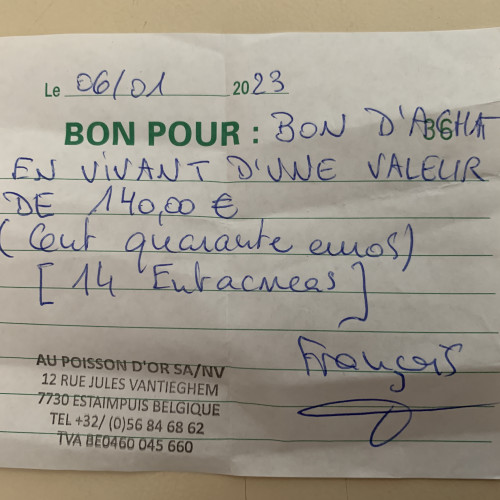 Le 06/01 2023
BON POUR : BON D'ACHAT
36
EN VIVANT D'UNE VALEUR
DE 140,00 €
(Cent quarante euros)
[14 Entacmeas]
François
AU POISSON D'OR SA/NV
12 RUE JULES VANTIEGHEM
7730 ESTAIMPUIS BELGIQUE
TEL +32/ (0)56 84 68 62
TVA BE0460 045 660